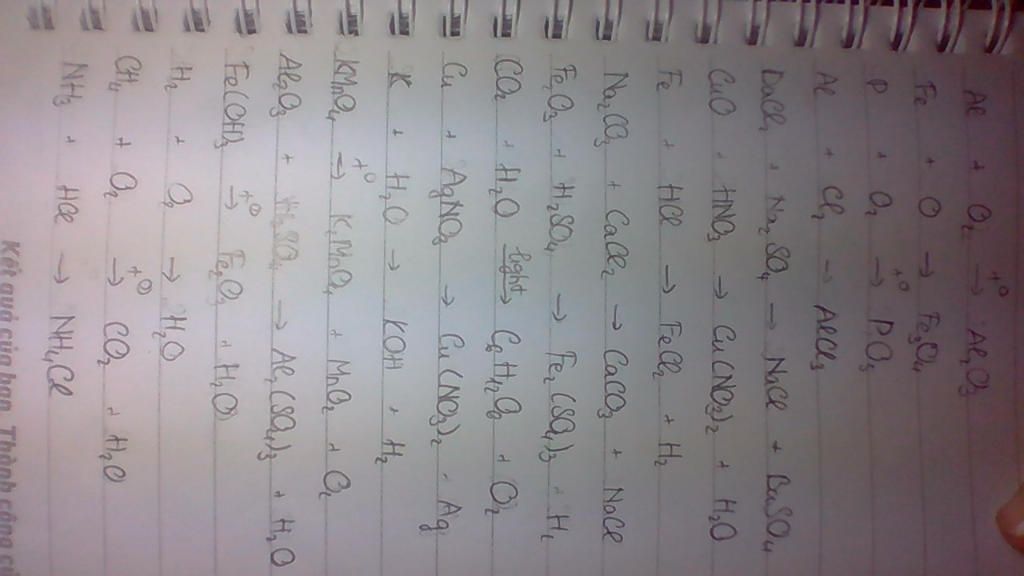 Al + O₂ →(t°) Al₂O₃
Fe + O → Fe₃O₄
P + O₂ →(t°) PO₅
Al + Cl₂ → AlCl₃
BaCl₂ + Na₂SO₄ → NaCl + BaSO₄
CuO + HNO₃ → Cu(NO₃)₂ + H₂O
Fe + HCl → FeCl₂ + H₂
Na₂CO₃ + CaCl₂ → CaCO₃ + NaCl
Fe₂O₃ + H₂SO₄ → Fe₂(SO₄)₃ + H₂
CO₂ + H₂O →(light) C₆H₁₂O₆ + O₂
Cu + AgNO₃ → Cu(NO₃)₂ + Ag
K + H₂O → KOH + H₂
KMnO₄ →(t°) K₂MnO₄ + MnO₂ + O₂
Al₂O₃ + H₂SO₄ → Al₂(SO₄)₃ + H₂O
Fe(OH)₃ →(t°) Fe₂O₃ + H₂O
H₂ + O₂ → H₂O
CH₄ + O₂ →(t°) CO₂ + H₂O
NH₃ + HCl → NH₄Cl
Kết quả của bạn. Thành công củ